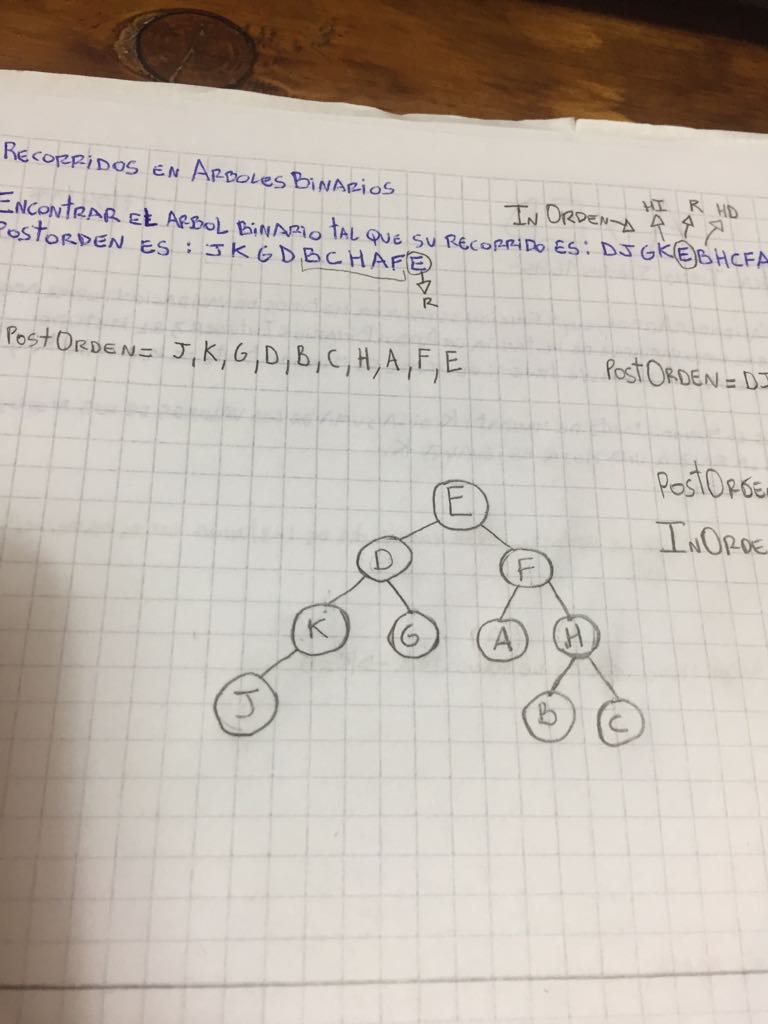 RECORRIDOS EN ARBOLES BINARIOS
HI R HD
IN ORDEN→
ENCONTRAR EL ARBOL BINARIO TAL QUE SU RECORRIDO ES: DJGKEBHCFA
POSTORDEN ES: JKGDBCHAFE
R
POSTORDEN= J,K,G,D,B,C,H,A,F,E
POSTORDEN = DJ
POSTORDE
INORDE
E
D F
K G A H
J B C